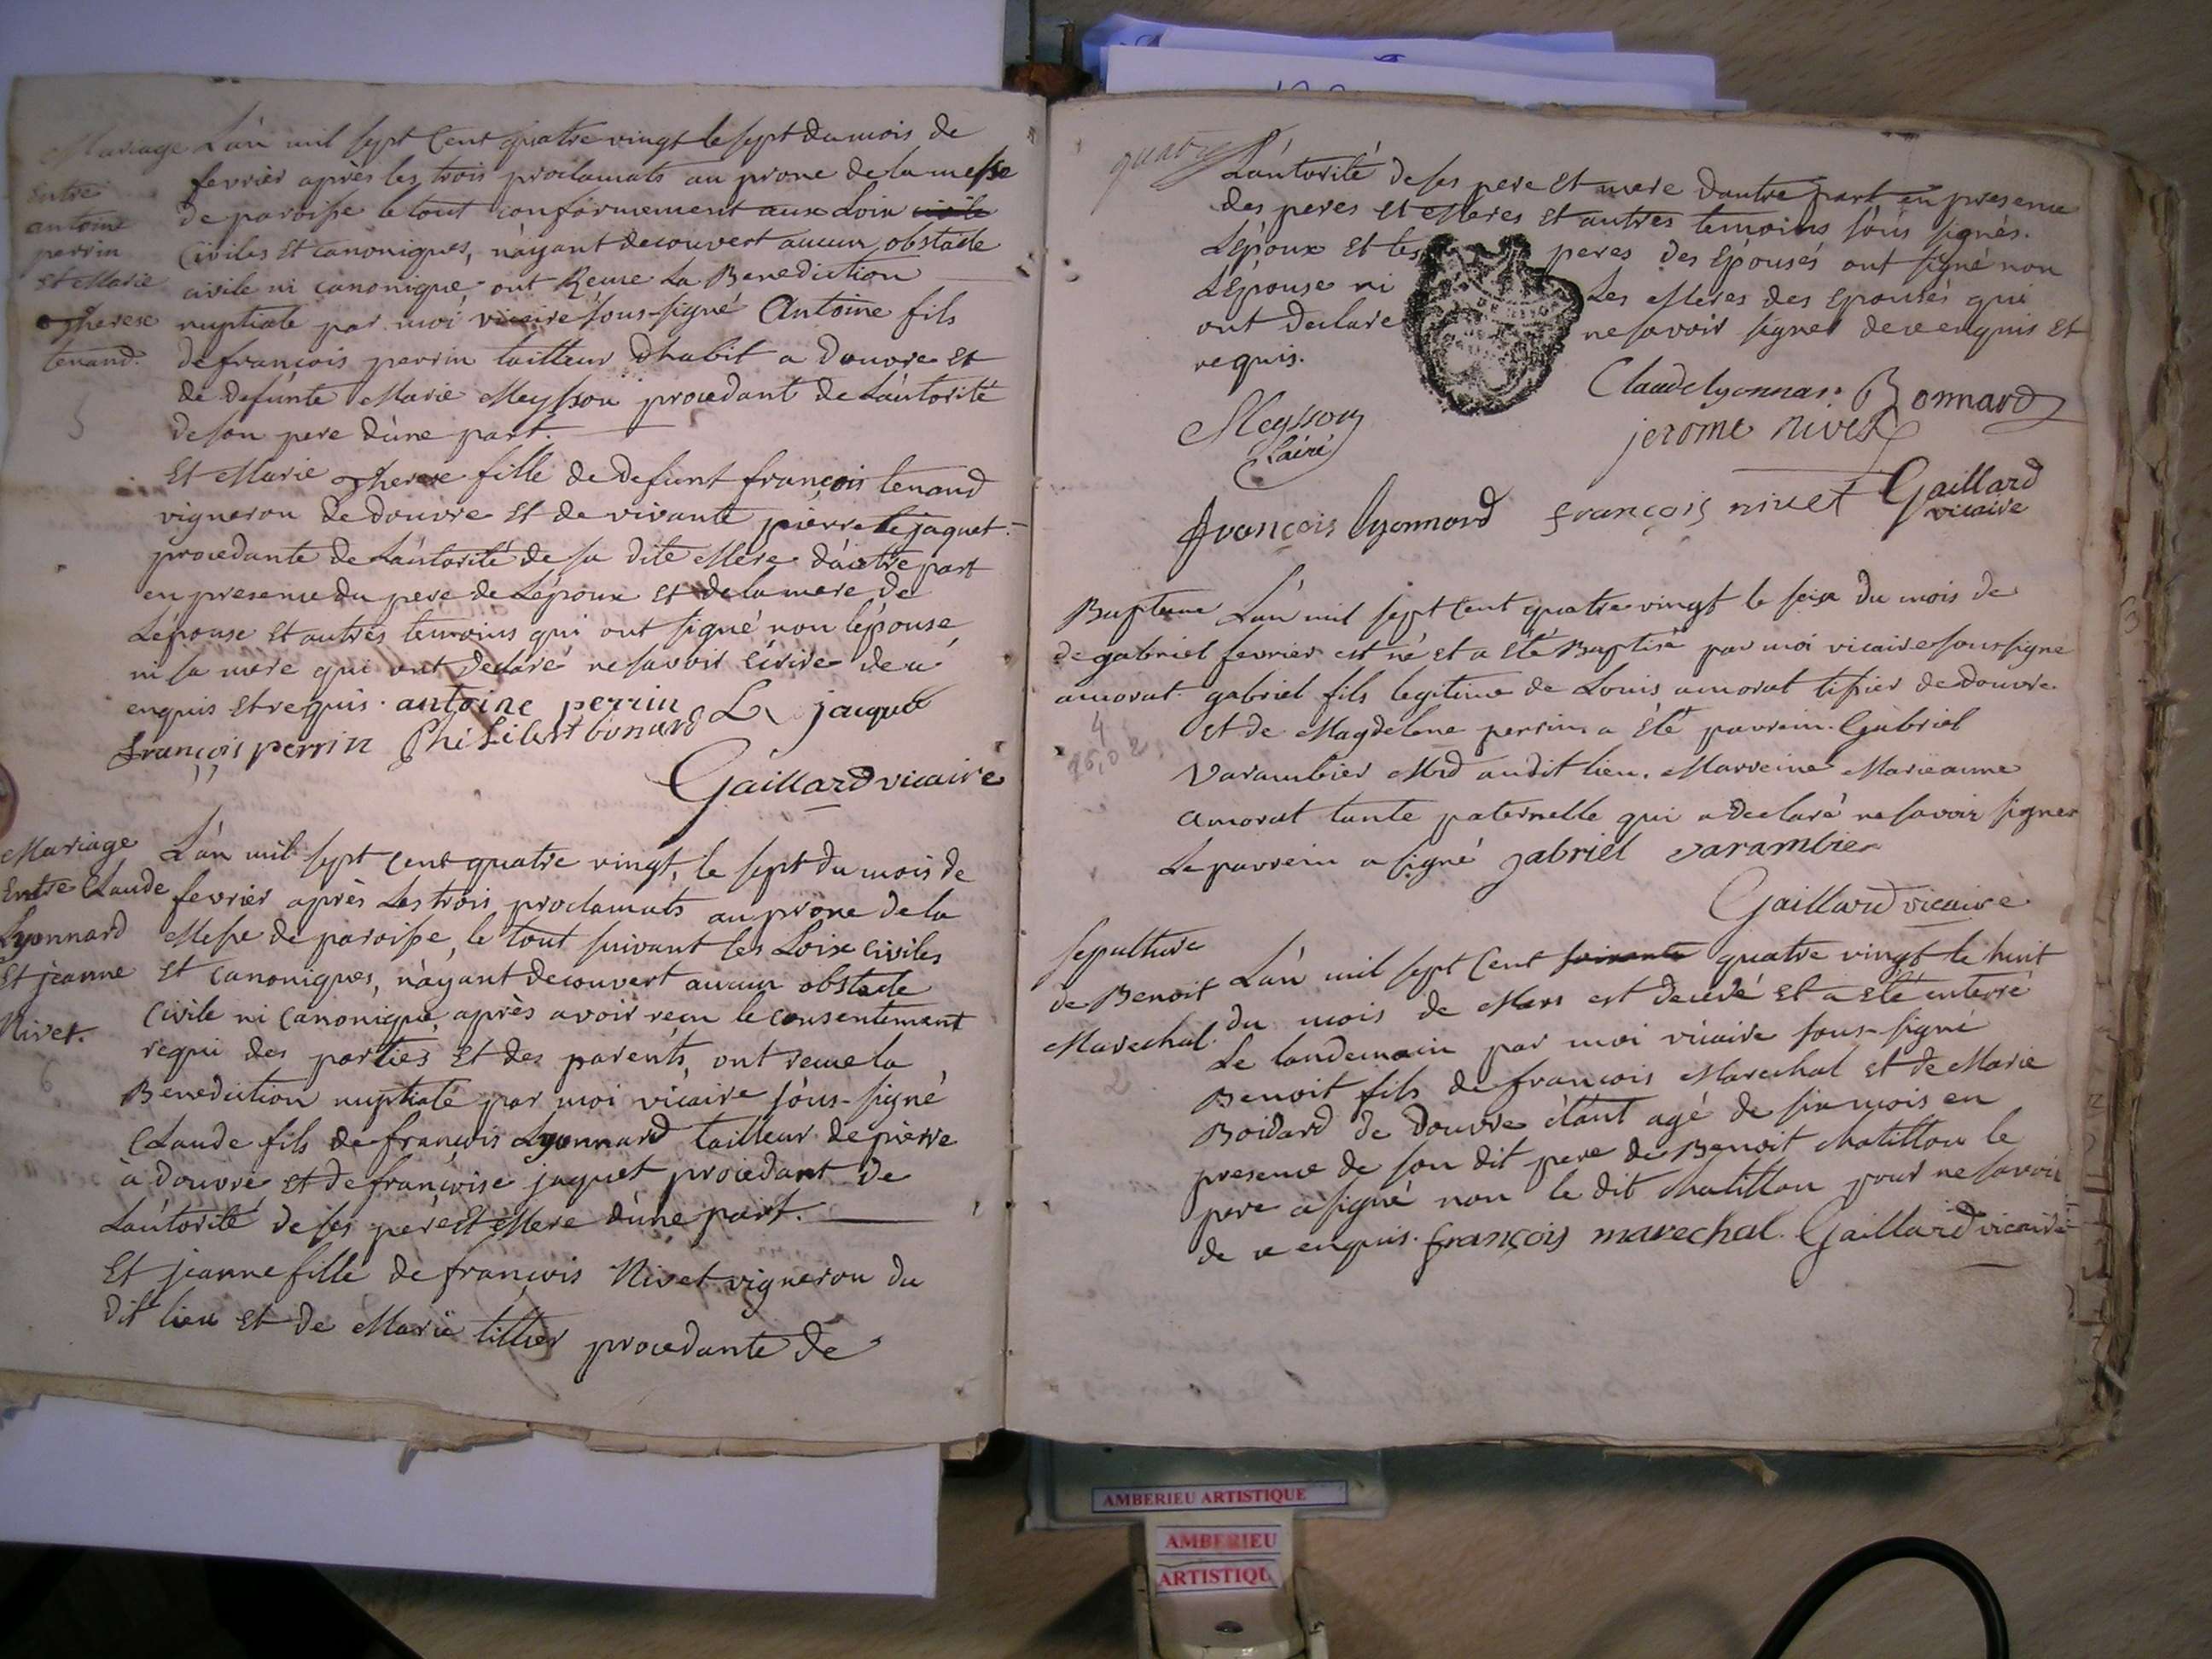 Mariage
Entre
antoine
perrin
et Marie
Therese
tenand.
5
L'an mil sept Cent quatre vingt le sept du mois de
fevrier après les trois proclamats au prone de la messe
de paroisse le tout conformement aux Loix civile
Civiles et canoniques, n'ayant decouvert aucun obstacle
civile ni canonique ont Recue La Benediction
nuptiale par moi vicaire sous-signé Antoine fils
de françois perrin tailleur d'habit a Douvre et
de defunte Marie Meysson procedant de L'autorité
de son pere d'une part.
Et Marie Therese fille de Defunt françois tenand
vigneron de Douvre et de vivante pierrete jaquet
procedante de L'autorité de sa dite Mere d'autre part
en presence du pere de L'époux et de la mere de
L'épouse et autres temoins qui ont signé non l'épouse
ni sa mere qui ont Declaré ne savoir Ecrire de ce
enquis et requis. antoine perrin L jaquet
françois perrin Philibert bonard
Gaillard vicaire
Mariage
Entre Claude
Lyonnard
Et jeanne
Nivet.
6
L'an mil sept cent quatre vingt, le sept du mois de
fevrier après Les trois proclamats au prone de la
Messe de paroisse, le tout suivant les Loix civiles
et canoniques, n'ayant decouvert aucun obstacle
Civile ni canonique, après avoir reçu le consentement
requi des parties et des parents, ont recue la
Benediction nuptiale par moi vicaire sous-signé
Claude fils de françois Lyonnard tailleur de pierre
à Douvre et de françoise jaquet procedant de
L'autorité de ses pere et Mere d'une part.
Et jeanne fille de françois Nivet vigneron du
dit lieu et de Marie tillier procedante de
L'autorité de ses pere et mere d'autre part en presence
des peres et Meres et autres temoins sous signés.
L'époux et les peres des Epousés ont signé non
L'Epouse ni Les Meres des Epousés qui
ont Declare ne savoir signer de ce enquis et
requis.
Claude lyonnar Bonnard
Meysson
jerome nivet
françois lyonnard françois nivet Gaillard
vicaire
Bapteme
de gabriel
amorat.
4
L'an mil sept Cent quatre vingt le seize du mois de
fevrier est né et a été Baptisé par moi vicaire sous signé
gabriel fils legitime de Louis amorat tissier de Douvre
et de Magdelene perrin a été parrein Gabriel
Varambier Md audit lieu. Marreine Marieanne
Amorat tante paternelle qui a declaré ne savoir signer
Le parrein a signé gabriel varambier
Gaillard vicaire
Sepulture
de Benoit
Marechal.
2
L'an mil sept Cent soixante quatre vingt le huit
du mois de Mars est decedé et a été enterré
Le landemain par moi vicaire sous-signé
Benoit fils de françois Marechal et de Marie
Boidard de Douvre étant agé de six mois en
presence de son dit pere de Benoit chatillon le
pere a signé non le dit chatillon pour ne savoir
de ce enquis. françois marechal. Gaillard vicaire
AMBERIEU ARTISTIQUE
AMBERIEU
ARTISTIQU